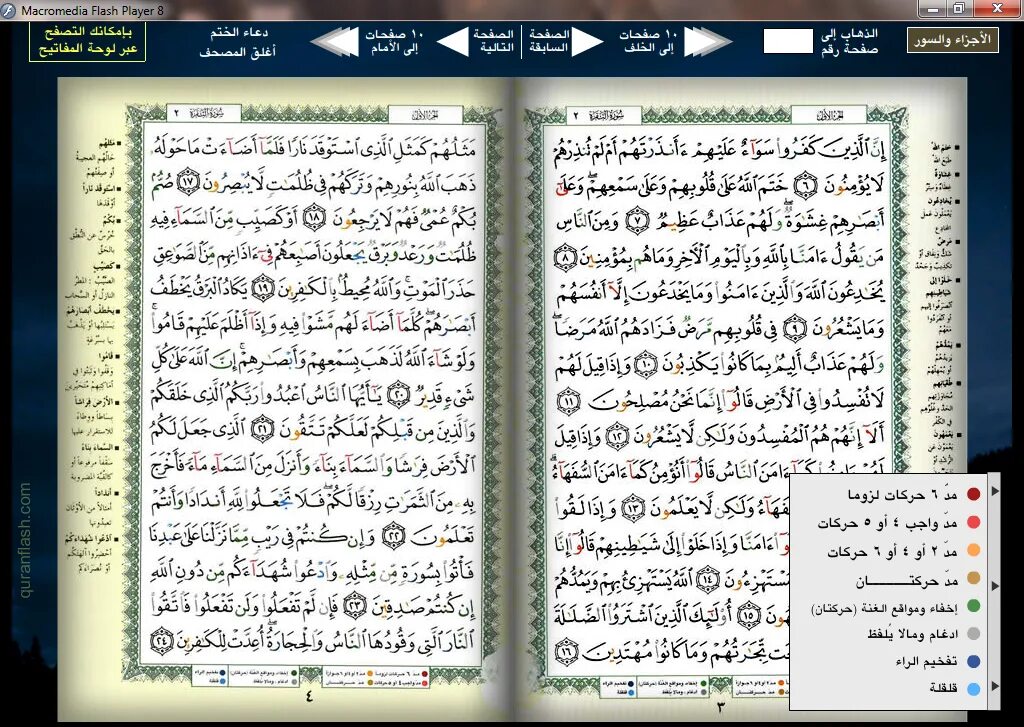 Macromedia Flash Player 8
الأجزاء والسور
الذهاب إلى
صفحة رقم
١٠ صفحات
إلى الخلف
الصفحة
السابقة
الصفحة
التالية
١٠ صفحات
إلى الأمام
دعاء الختم
أغلق المصحف
بإمكانك التصفح
عبر لوحة المفاتيح
سُورَةُ البَقَرَة ٢
إِنَّ ٱلَّذِينَ كَفَرُوا۟ سَوَآءٌ عَلَيْهِمْ ءَأَنذَرْتَهُمْ أَمْ لَمْ تُنذِرْهُمْ
لَا يُؤْمِنُونَ ٦ خَتَمَ ٱللَّهُ عَلَىٰ قُلُوبِهِمْ وَعَلَىٰ سَمْعِهِمْ ۖ وَعَلَىٰٓ
أَبْصَـٰرِهِمْ غِشَـٰوَةٌ ۖ وَلَهُمْ عَذَابٌ عَظِيمٌ ٧ وَمِنَ ٱلنَّاسِ
مَن يَقُولُ ءَامَنَّا بِٱللَّهِ وَبِٱلْيَوْمِ ٱلْـَٔاخِرِ وَمَا هُم بِمُؤْمِنِينَ ٨
يُخَـٰدِعُونَ ٱللَّهَ وَٱلَّذِينَ ءَامَنُوا۟ وَمَا يَخْدَعُونَ إِلَّآ أَنفُسَهُمْ
وَمَا يَشْعُرُونَ ٩ فِى قُلُوبِهِم مَّرَضٌ فَزَادَهُمُ ٱللَّهُ مَرَضًا ۖ
وَلَهُمْ عَذَابٌ أَلِيمٌۢ بِمَا كَانُوا۟ يَكْذِبُونَ ١٠ وَإِذَا قِيلَ لَهُمْ
لَا تُفْسِدُوا۟ فِى ٱلْأَرْضِ قَالُوٓا۟ إِنَّمَا نَحْنُ مُصْلِحُونَ ١١
أَلَآ إِنَّهُمْ هُمُ ٱلْمُفْسِدُونَ وَلَـٰكِن لَّا يَشْعُرُونَ ١٢ وَإِذَا قِيلَ
ءَامَنَ ٱلنَّاسُ قَالُوٓا۟ أَنُؤْمِنُ كَمَآ ءَامَنَ ٱلسُّفَهَآءُ
وَلَـٰكِن لَّا يَعْلَمُونَ ١٣ وَإِذَا لَقُوا۟
ءَامَنَّا وَإِذَا خَلَوْا۟ إِلَىٰ شَيَـٰطِينِهِمْ قَالُوٓا۟ إِنَّا
١٤ ٱللَّهُ يَسْتَهْزِئُ بِهِمْ وَيَمُدُّهُمْ
١٥ أُو۟لَـٰٓئِكَ ٱلَّذِينَ ٱشْتَرَوُا۟ ٱلضَّلَـٰلَةَ
تِّجَـٰرَتُهُمْ وَمَا كَانُوا۟ مُهْتَدِينَ ١٦
٣
سُورَةُ البَقَرَة ٢
مَثَلُهُمْ كَمَثَلِ ٱلَّذِى ٱسْتَوْقَدَ نَارًا فَلَمَّآ أَضَآءَتْ مَا حَوْلَهُۥ
ذَهَبَ ٱللَّهُ بِنُورِهِمْ وَتَرَكَهُمْ فِى ظُلُمَـٰتٍ لَّا يُبْصِرُونَ ١٧ صُمٌّۢ
بُكْمٌ عُمْىٌ فَهُمْ لَا يَرْجِعُونَ ١٨ أَوْ كَصَيِّبٍ مِّنَ ٱلسَّمَآءِ فِيهِ
ظُلُمَـٰتٌ وَرَعْدٌ وَبَرْقٌ يَجْعَلُونَ أَصَـٰبِعَهُمْ فِىٓ ءَاذَانِهِم مِّنَ ٱلصَّوَٰعِقِ
حَذَرَ ٱلْمَوْتِ ۚ وَٱللَّهُ مُحِيطٌۢ بِٱلْكَـٰفِرِينَ ١٩ يَكَادُ ٱلْبَرْقُ يَخْطَفُ
أَبْصَـٰرَهُمْ ۖ كُلَّمَآ أَضَآءَ لَهُم مَّشَوْا۟ فِيهِ وَإِذَآ أَظْلَمَ عَلَيْهِمْ قَامُوا۟ ۚ
وَلَوْ شَآءَ ٱللَّهُ لَذَهَبَ بِسَمْعِهِمْ وَأَبْصَـٰرِهِمْ ۚ إِنَّ ٱللَّهَ عَلَىٰ كُلِّ
شَىْءٍ قَدِيرٌ ٢٠ يَـٰٓأَيُّهَا ٱلنَّاسُ ٱعْبُدُوا۟ رَبَّكُمُ ٱلَّذِى خَلَقَكُمْ
وَٱلَّذِينَ مِن قَبْلِكُمْ لَعَلَّكُمْ تَتَّقُونَ ٢١ ٱلَّذِى جَعَلَ لَكُمُ
ٱلْأَرْضَ فِرَٰشًا وَٱلسَّمَآءَ بِنَآءً وَأَنزَلَ مِنَ ٱلسَّمَآءِ مَآءً فَأَخْرَجَ
بِهِۦ مِنَ ٱلثَّمَرَٰتِ رِزْقًا لَّكُمْ ۖ فَلَا تَجْعَلُوا۟ لِلَّهِ أَندَادًا وَأَنتُمْ
تَعْلَمُونَ ٢٢ وَإِن كُنتُمْ فِى رَيْبٍ مِّمَّا نَزَّلْنَا عَلَىٰ عَبْدِنَا
فَأْتُوا۟ بِسُورَةٍ مِّن مِّثْلِهِۦ وَٱدْعُوا۟ شُهَدَآءَكُم مِّن دُونِ ٱللَّهِ
إِن كُنتُمْ صَـٰدِقِينَ ٢٣ فَإِن لَّمْ تَفْعَلُوا۟ وَلَن تَفْعَلُوا۟ فَٱتَّقُوا۟
ٱلنَّارَ ٱلَّتِى وَقُودُهَا ٱلنَّاسُ وَٱلْحِجَارَةُ ۖ أُعِدَّتْ لِلْكَـٰفِرِينَ ٢٤
٤
مدّ ٦ حركات لزوما
مدّ واجب ٤ أو ٥ حركات
مدّ ٢ أو ٤ أو ٦ حركات
مدّ حركتـــــان
إخفاء ومواقع الغنة (حركتان)
ادغام ومالا يُلفظ
تفخيم الراء
قلقلة
quranflash.com